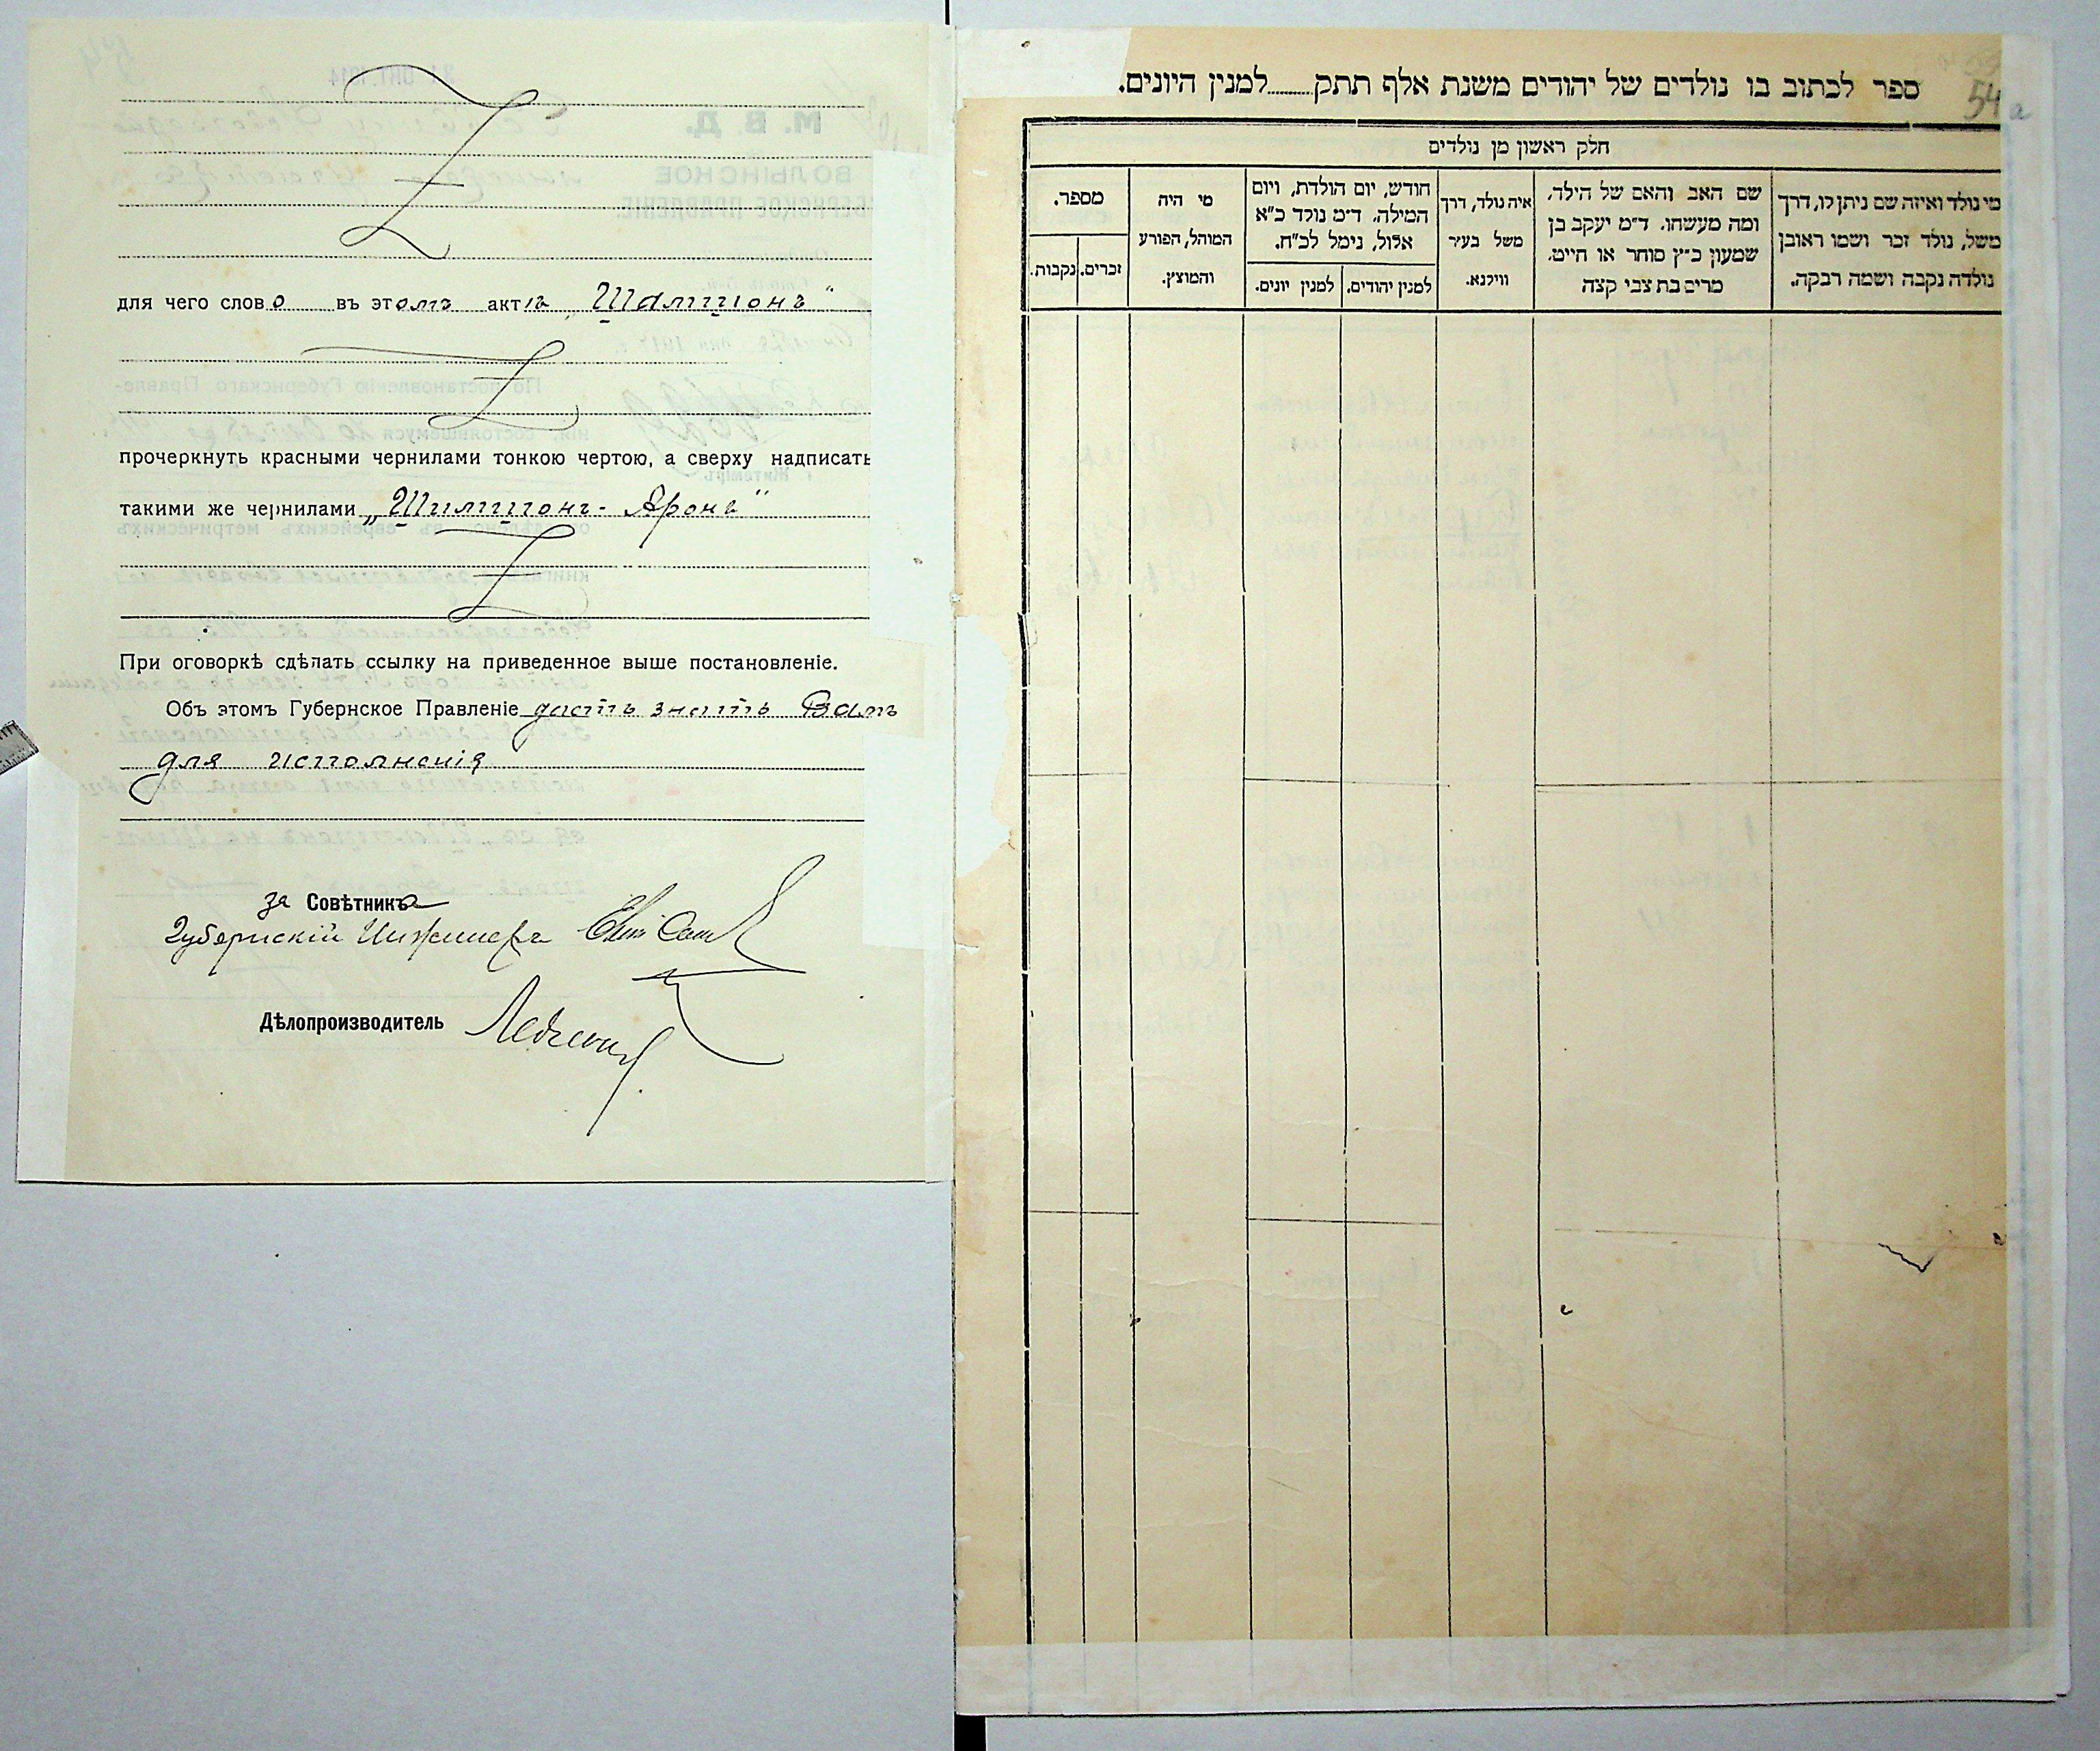 для чего слово въ этомъ актѣ „Шамшонъ“
прочеркнуть красными чернилами тонкою чертою, а сверху надписать
такими же чернилами „Шимшонъ-Аронъ“
При оговоркѣ сдѣлать ссылку на приведенное выше постановленіе.
Объ этомъ Губернское Правленіе даетъ знать Вамъ
для исполненія
за Совѣтника
Губернскій Инженеръ
Дѣлопроизводитель
ספר לכתוב בו נולדים של יהודים משנת אלף תתק........למנין היונים.
54 a
חלק ראשון מן נולדים
מי נולד ואיזה שם ניתן לו, דרך
משל, נולד זכר ושמו ראובן
נולדה נקבה ושמה רבקה.
שם האב והאם של הילד,
ומה מעשהו. ד״מ יעקב בן
שמעון כ״ץ סוחר או חייט.
מרים בת צבי קצה
איה נולד, דרך
משל בעיר
ווילנא.
חודש, יום הולדת, ויום
המילה. ד״מ נולד כ״א
אלול, נימל לכ״ח.
למנין יהודים.
למנין יונים.
מי היה
המוהל, הפורע
והמוצץ.
מספר.
זכרים.
נקבות.